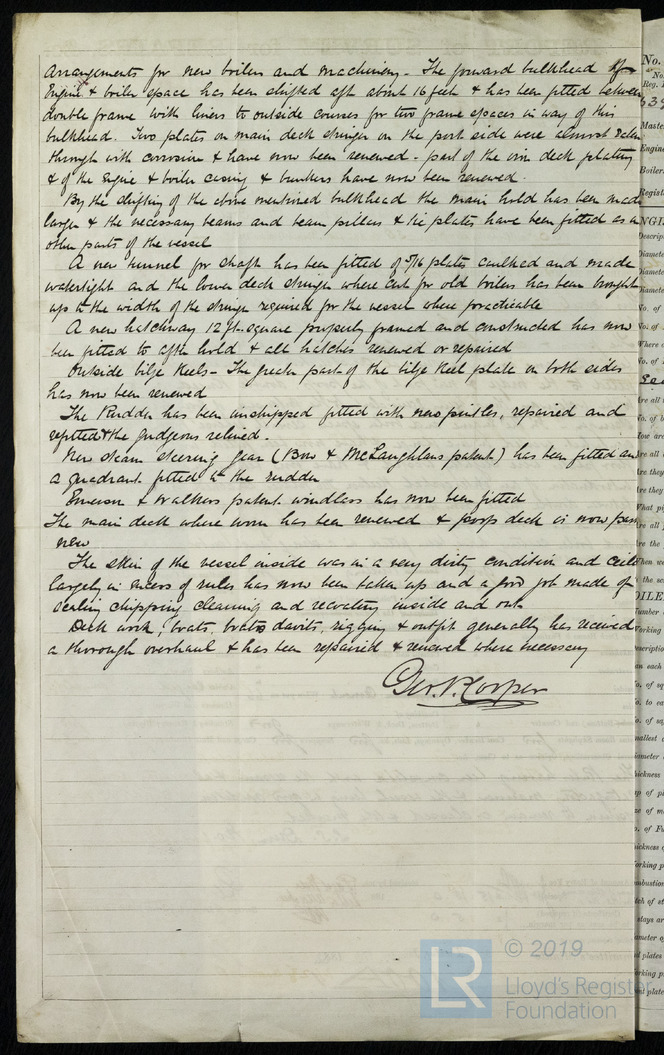 Arrangements for new boilers and machinery - The forward bulkhead of
Engine & boiler space has been shifted aft about 16 feet & has been fitted between
double frame with liners to outside courses for two frame spaces in way of this
bulkhead. Two plates on main deck stringer on the port side were almost eaten
through with corrosion & have now been renewed - part of the iron deck plating
& of the Engine & boiler casing & bunkers have now been renewed.
By the shifting of the above mentioned bulkhead the main hold has been made
larger & the necessary beams and beam pillars & tie plates have been fitted as in
other parts of the vessel
A new tunnel for shaft has been fitted of 5/16 plates caulked and made
watertight and the lower deck stringer where cut for old boilers has been brought
up to the width of the stringer required for the vessel where practicable
A new hatchway 12 ft. square properly framed and constructed has now
been fitted to after hold & all hatches renewed or repaired
Outside bilge Keels - The greater part of the bilge Keel plate on both sides
has now been renewed
The Rudder has been unshipped fitted with new pintles, repaired and
refitted & the gudgeons relined.
New steam steering gear (Bow & McLaughlans patent) has been fitted and
a quadrant fitted to the rudder
Emerson & Walkers patent windlass has now been fitted
The main deck where worn has been renewed & poop deck is now
new
The skin of the vessel inside was in a very dirty condition and
largely in excess of rules has now been taken up and a good job made of
scaling chipping cleaning and recoating inside and out.
Deck work, boats, boats davits, rigging & outfit generally has received
a thorough overhaul & has been repaired & renewed where necessary
Geo. V. Cooper
No.
Reg.
Master
Engine
Boiler
Regist
© 2019
LR
Lloyd's Register
Foundation